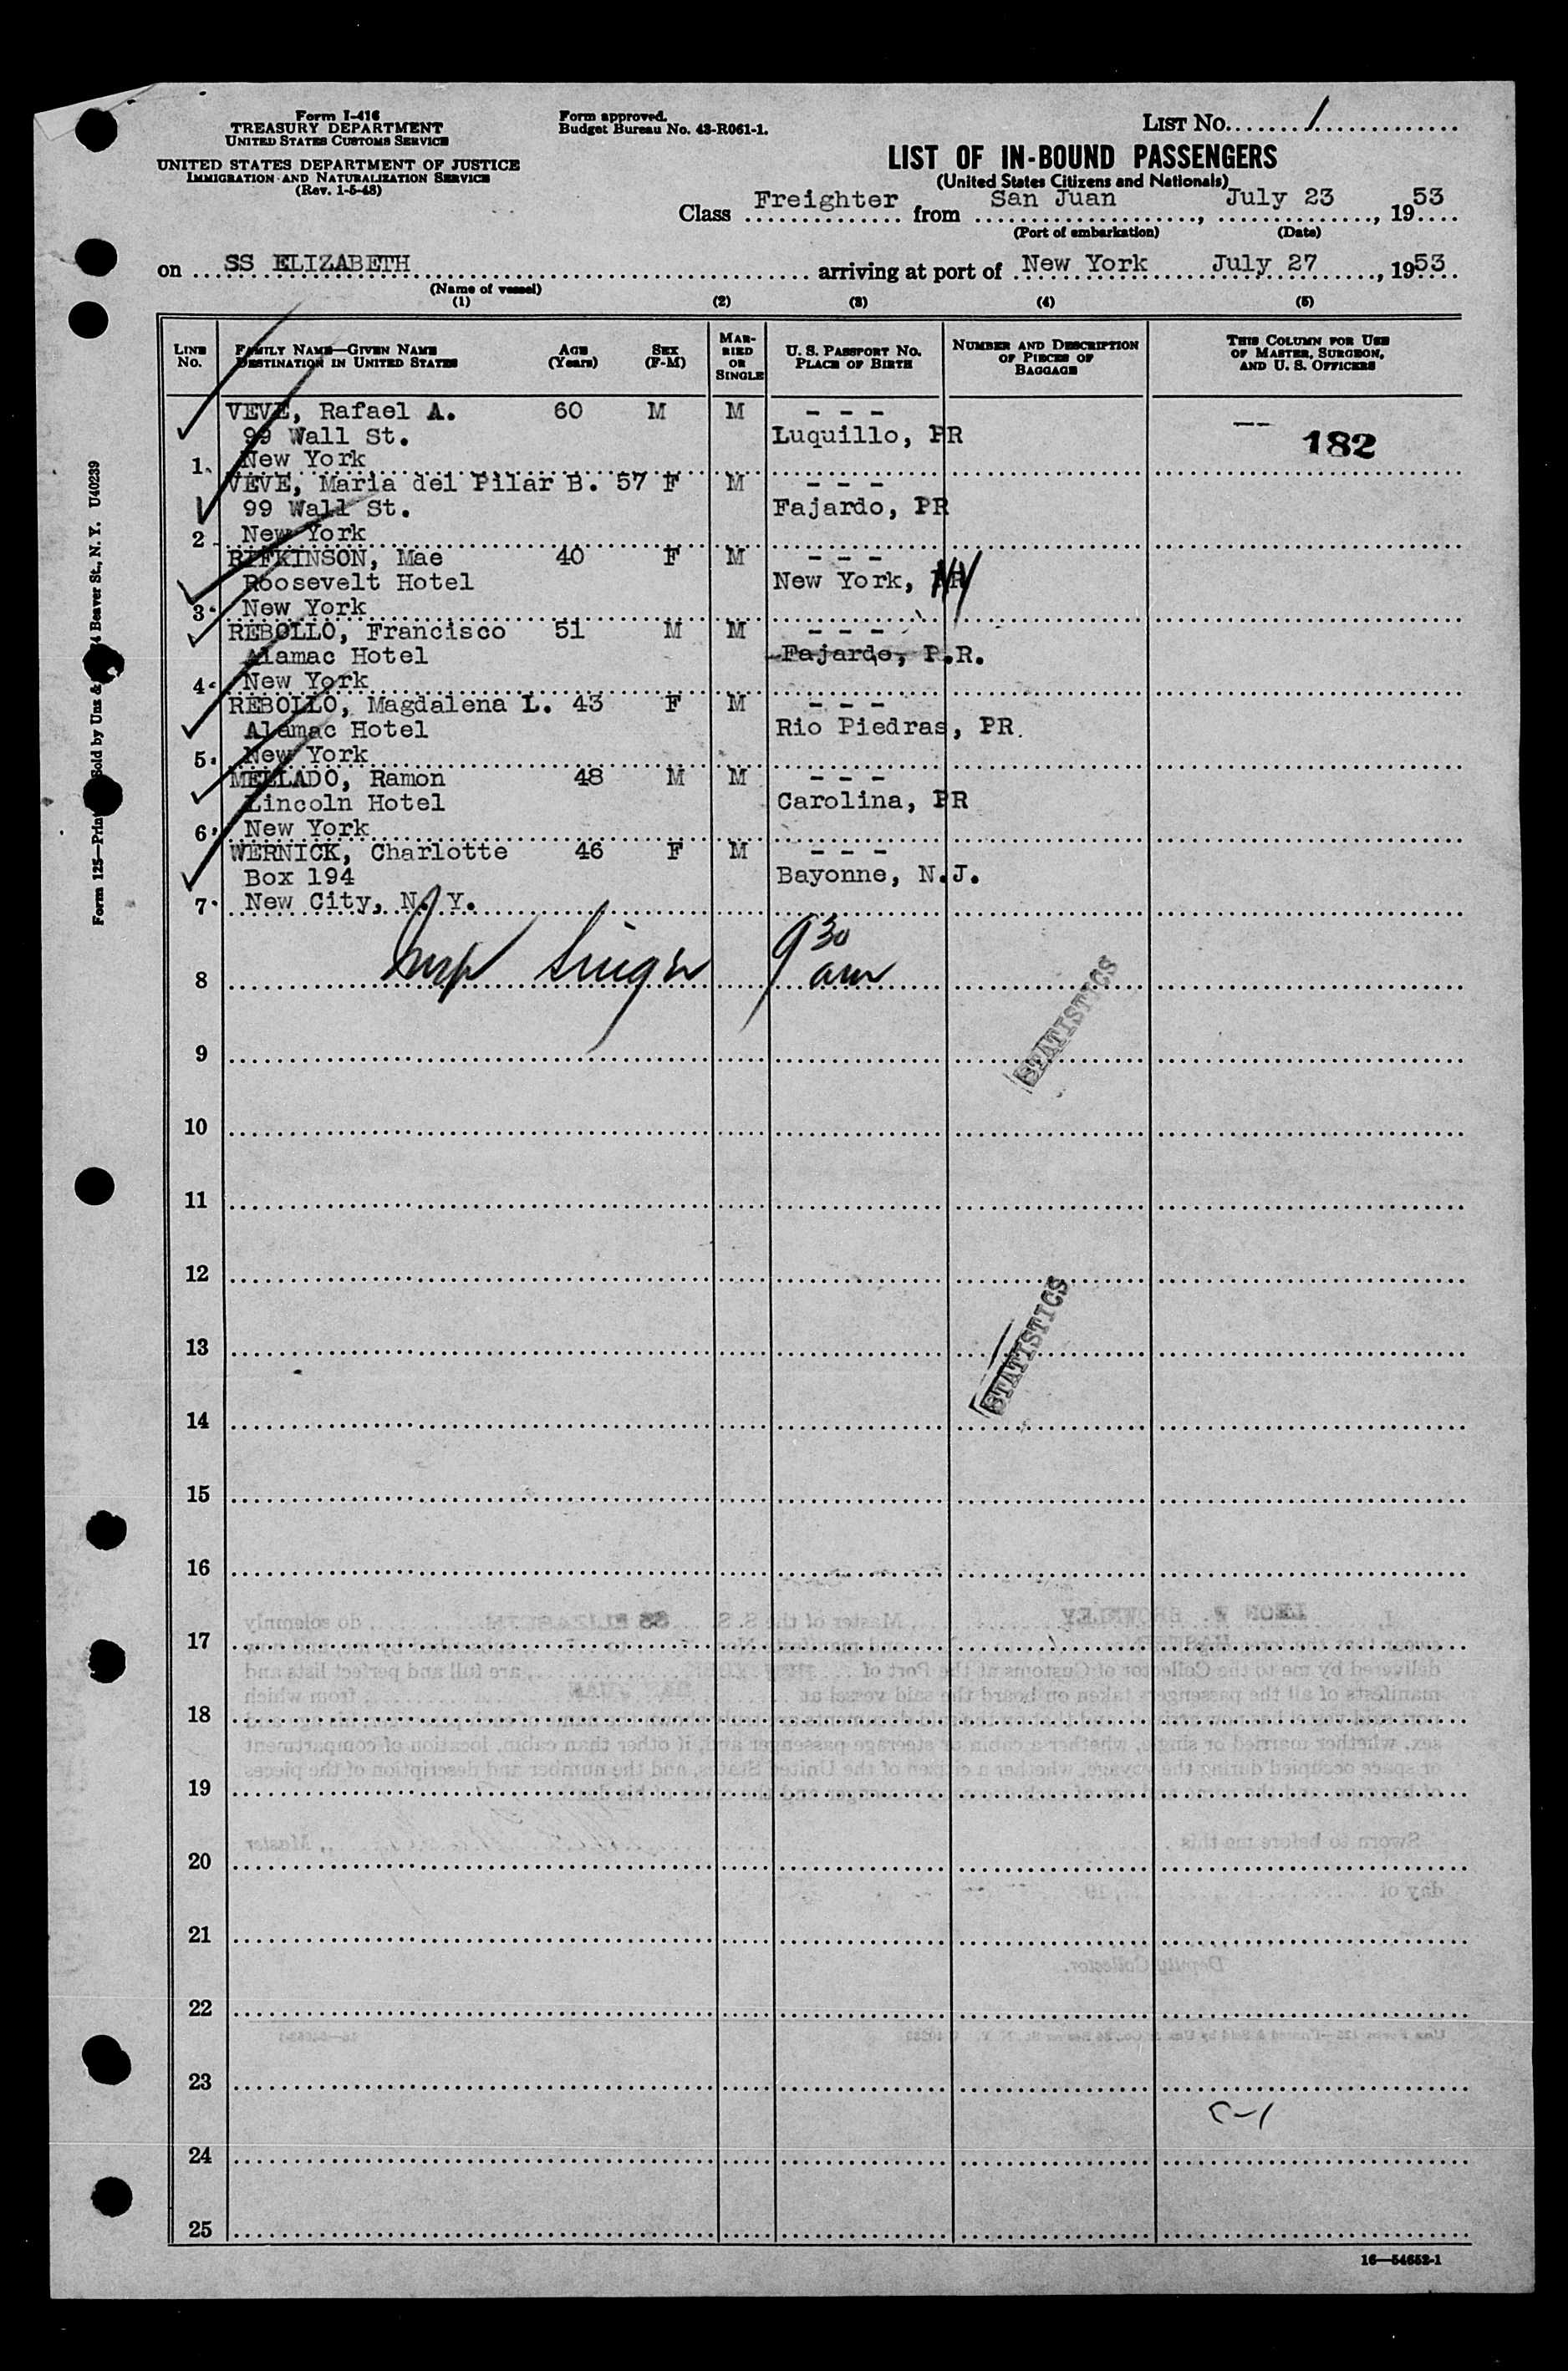 Form I-416
TREASURY DEPARTMENT
UNITED STATES CUSTOMS SERVICE
UNITED STATES DEPARTMENT OF JUSTICE
IMMIGRATION AND NATURALIZATION SERVICE
(Rev. 1-5-48)
Form approved.
Budget Bureau No. 43-R061-1.
LIST NO. 1
LIST OF IN-BOUND PASSENGERS
(United States Citizens and Nationals)
Class Freighter from San Juan, July 23, 1953
(Port of embarkation) (Date)
on SS ELIZABETH arriving at port of New York July 27, 1953
(Name of vessel)
(1) (2) (3) (4) (5)
LINE NO.
FAMILY NAME—GIVEN NAME
DESTINATION IN UNITED STATES
AGE (Years)
SEX (F-M)
MARRIED OR SINGLE
U. S. PASSPORT NO.
PLACE OF BIRTH
NUMBER AND DESCRIPTION OF PIECES OF BAGGAGE
THIS COLUMN FOR USE OF MASTER, SURGEON, AND U. S. OFFICERS
VEVE, Rafael A. 60 M M - - -
99 Wall St. Luquillo, PR 182
1. New York
VEVE, Maria del Pilar B. 57 F M - - -
99 Wall St. Fajardo, PR
2 New York
RIFKINSON, Mae 40 F M - - -
Roosevelt Hotel New York, NY
3. New York
REBOLLO, Francisco 51 M M - - -
Alamac Hotel Fajardo, P.R.
4. New York
REBOLLO, Magdalena L. 43 F M - - -
Alamac Hotel Rio Piedras, PR.
5. New York
MELLADO, Ramon 48 M M - - -
Lincoln Hotel Carolina, PR
6. New York
WERNICK, Charlotte 46 F M - - -
Box 194 Bayonne, N.J.
7. New City, N. Y.
Insp Singer 9 30 am
8
STATISTICS
9
10
11
12
STATISTICS
13
14
15
16
17
18
19
20
21
22
23
C-1
24
25
16—54652-1
Form 125—Print Sold by Unz & 24 Beaver St., N. Y. U40239